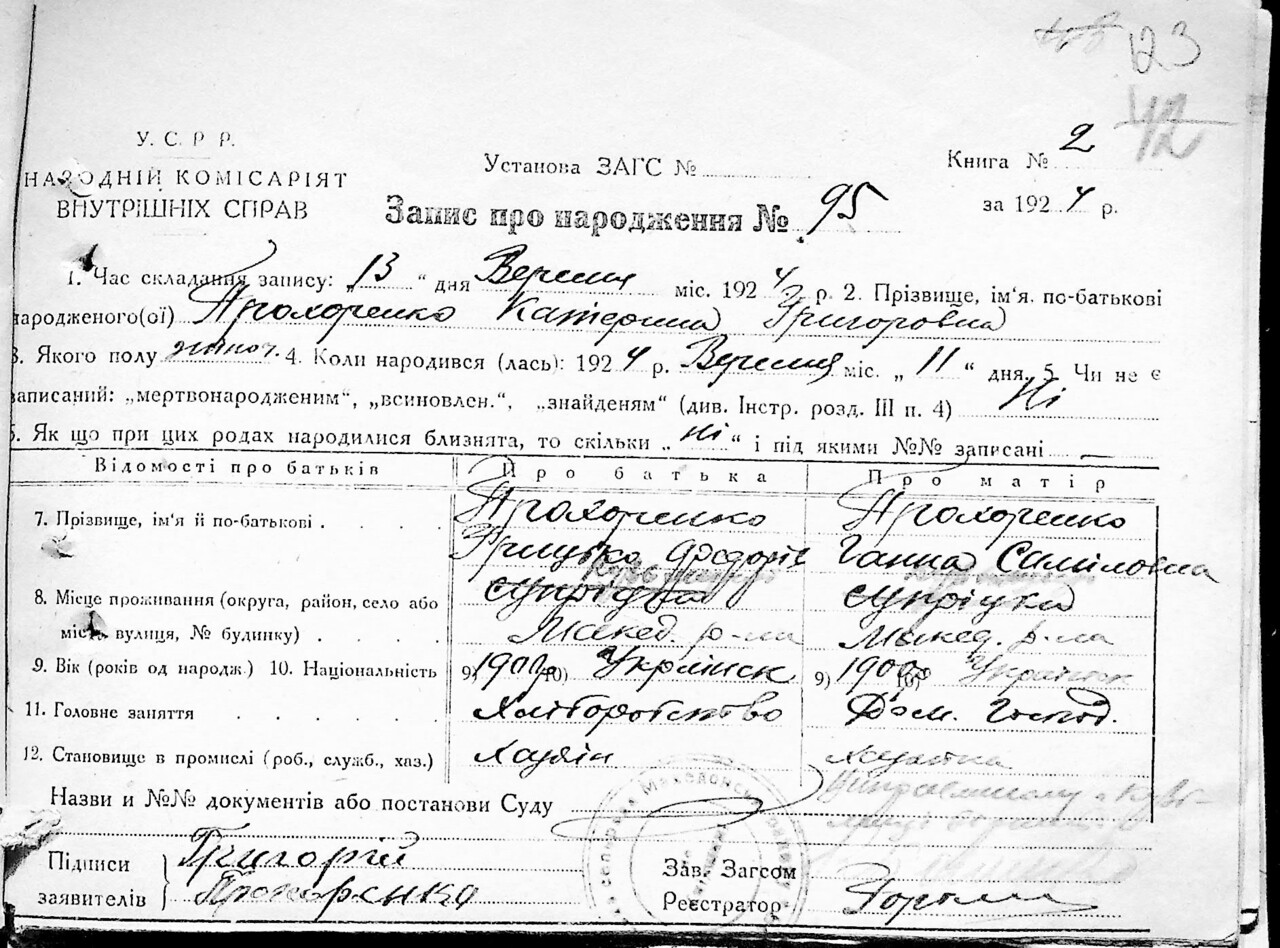 123
42
У. С. Р Р.
НАРОДНІЙ КОМІСАРІЯТ
ВНУТРІШНІХ СПРАВ
Установа ЗАГС №
Книга № 2
за 1924 р.
Запис про народження № 95
1. Час складання запису: „13“ дня Вересня міс. 1924 р. 2. Прізвище, ім‘я, по-батькові
народженого(ої) Прохоренко Катерина Григоровна
3. Якого полу жіноч. 4. Коли народився (лась): 1924 р. Вересня міс. „11“ дня. 5. Чи не є
записаний: „мертвонародженим“, „всиновлен.“, „знайденям“ (див. Інстр. розд. III п. 4) Ні
6. Як що при цих родах народилися близнята, то скільки „Ні“ і під якими №№ записані —
Відомості про батьків Про батька Про матір
7. Прізвище, ім‘я й по-батькові . . . . Прохоренко Прохоренко
Грицько Федорів Ганна Саміловна
8. Місце проживання (округа, район, село або
місто вулиця, № будинку) . . . . Макед. р-на Макед. р-на
9. Вік (років од народж.) 10. Національність 9) 10) Українск 9) 1900 10) Українск
11. Головне заняття . . . . . Хліборобство Дом. Господ.
12. Становище в промислі (роб., служб., хаз.) Хазяїн
Назви и №№ документів або постанови Суду
Підписи
заявителів
Григорій
Прохоренко
Зав. Загсом
Реєстратор